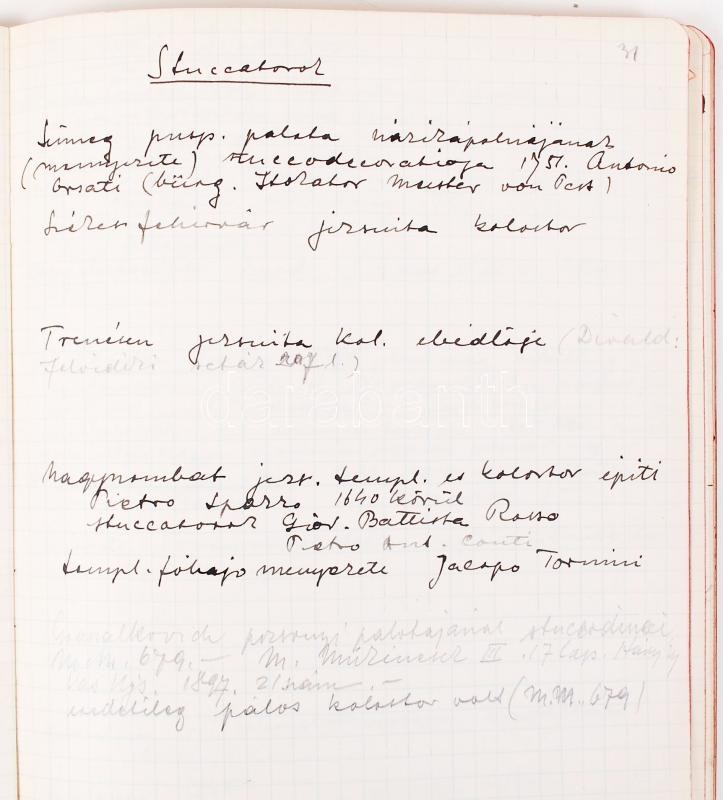 31
Stuccatorok
Sümeg püsp. palota házikápolnájának
(mennyezete) stuccodecoratioja 1751. Antonio
Orsati (bürg. Stokator Meister von Pest)
Székesfehérvár jezsuita kolostor
Trencsén jezsuita kol. ebédlője (Divald:
Felvidéki séták 207 l.)
Nagyszombat jezs. templ. es kolostor építi
Pietro Spazzo 1640 körül
stuccatorok Giov. Battista Rosso
Pietro Ant. Conti
templ. főhajo menyezete Jacopo Tornini
pozsonyi palotájának stuccodiszei
M.M. 679. — M. Műkincsek III. 17 lap.
1897. 21 szám. —
eredetileg pálos kolostor volt (M.M. 679)
darabanth